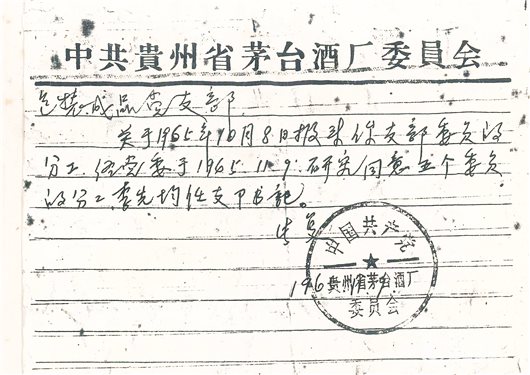 中共貴州省茅台酒厂委員会
包装成品党支部
关于1965年10月8日报来你支部委员的
分工，经党委于1965.11.9.研究同意五个委员
的分工李先均任支部书记。
中国共产党
貴州省茅台酒厂
委員会